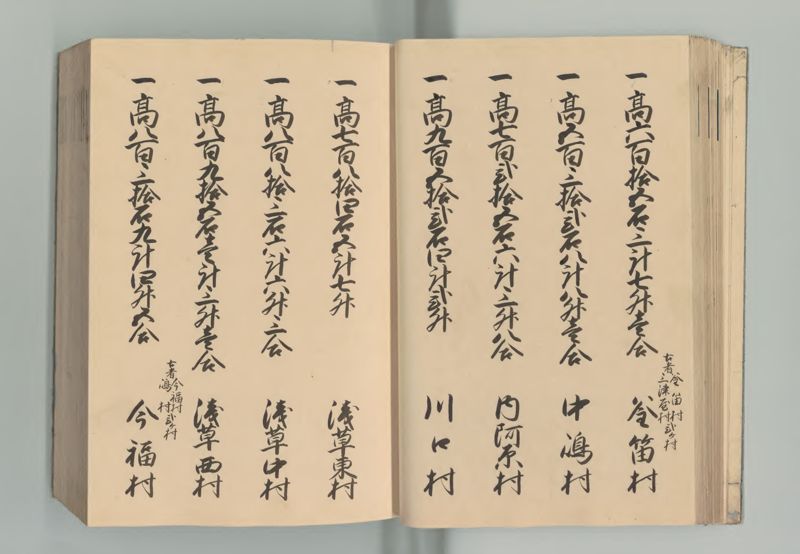 一 高六百拾五石三斗七升壱合 釜笛村
古者 釜笛村 三津屋村 弐ケ村
一 高五百三拾弐石八斗八升壱合 中嶋村
一 高七百弐拾五石六斗三升八合 内阿原村
一 高九百五拾弐石四斗弐升 川口村
一 高七百八拾四石五斗七升 浅草東村
一 高八百八拾三石六斗六升三合 浅草中村
一 高八百九拾五石壱斗三升壱合 浅草西村
一 高八百三拾石九斗四升五合 今福村
古者 今福村 嶋村 弐ケ村